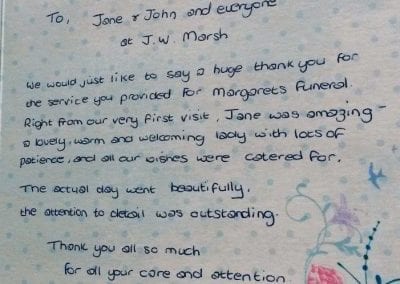 To, Jane & John and everyone
at J.W. Marsh
We would just like to say a huge thank you for
the service you provided for Margarets Funeral.
Right from our very first visit, Jane was amazing -
a lovely, warm and welcoming lady with lots of
patience, and all our wishes were catered for.
The actual day went beautifully,
the attention to detail was outstanding.
Thank you all so much
for all your care and attention.